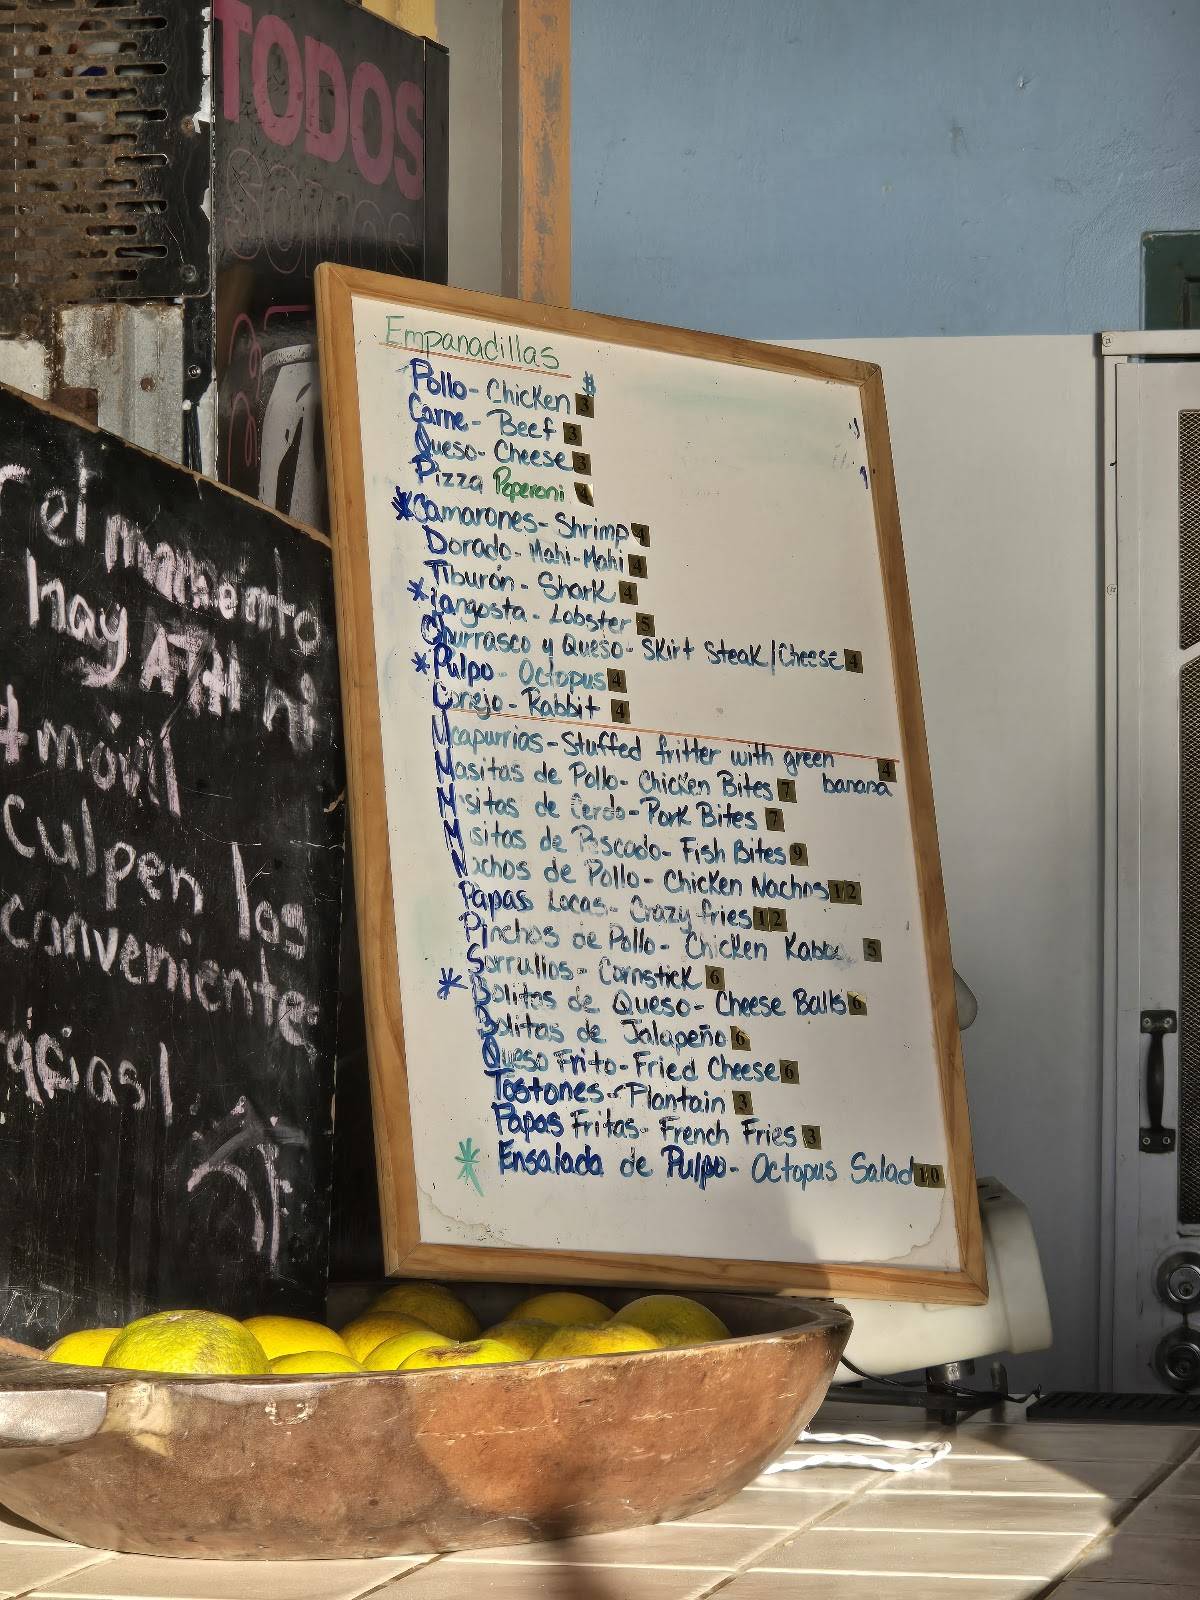 TODOS
SOMOS
Empanadillas
$
Pollo- Chicken 3
Carne- Beef 3
Queso- Cheese 3
Pizza Peperoni 4
*Camarones- Shrimp 4
Dorado- Mahi-Mahi 4
Tiburón- Shark 4
*Langosta- Lobster 5
Churrasco y Queso- Skirt Steak/Cheese 4
*Pulpo- Octopus 4
Conejo- Rabbit 4
lcapurrias- Stuffed fritter with green 4
banana
Masitas de Pollo- Chicken Bites 7
Masitas de Cerdo- Pork Bites 7
Masitas de Pescado- Fish Bites 9
Nachos de Pollo- Chicken Nachos 12
Papas Locas- Crazy fries 12
Pinchos de Pollo- Chicken 5
Sorrullos- Cornstick 6
*Bolitas de Queso- Cheese Balls 6
Bolitas de Jalapeño 6
Queso Frito- Fried Cheese 6
Tostones- Plantain 3
Papas Fritas- French Fries 3
*Ensalada de Pulpo- Octopus Salad 10
r el momento
hay ATH ni
t móvil
Culpen los
conveniente
acias!